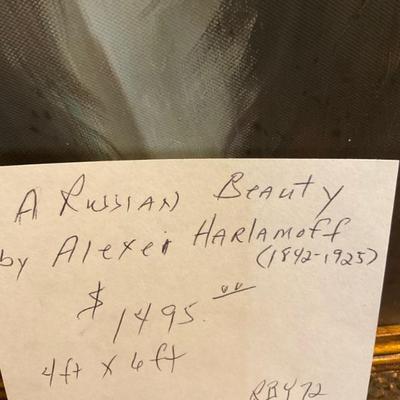 A Russian Beauty
by Alexei Harlamoff
(1842-1925)
$1495.00
4ft x 6ft
RBY72